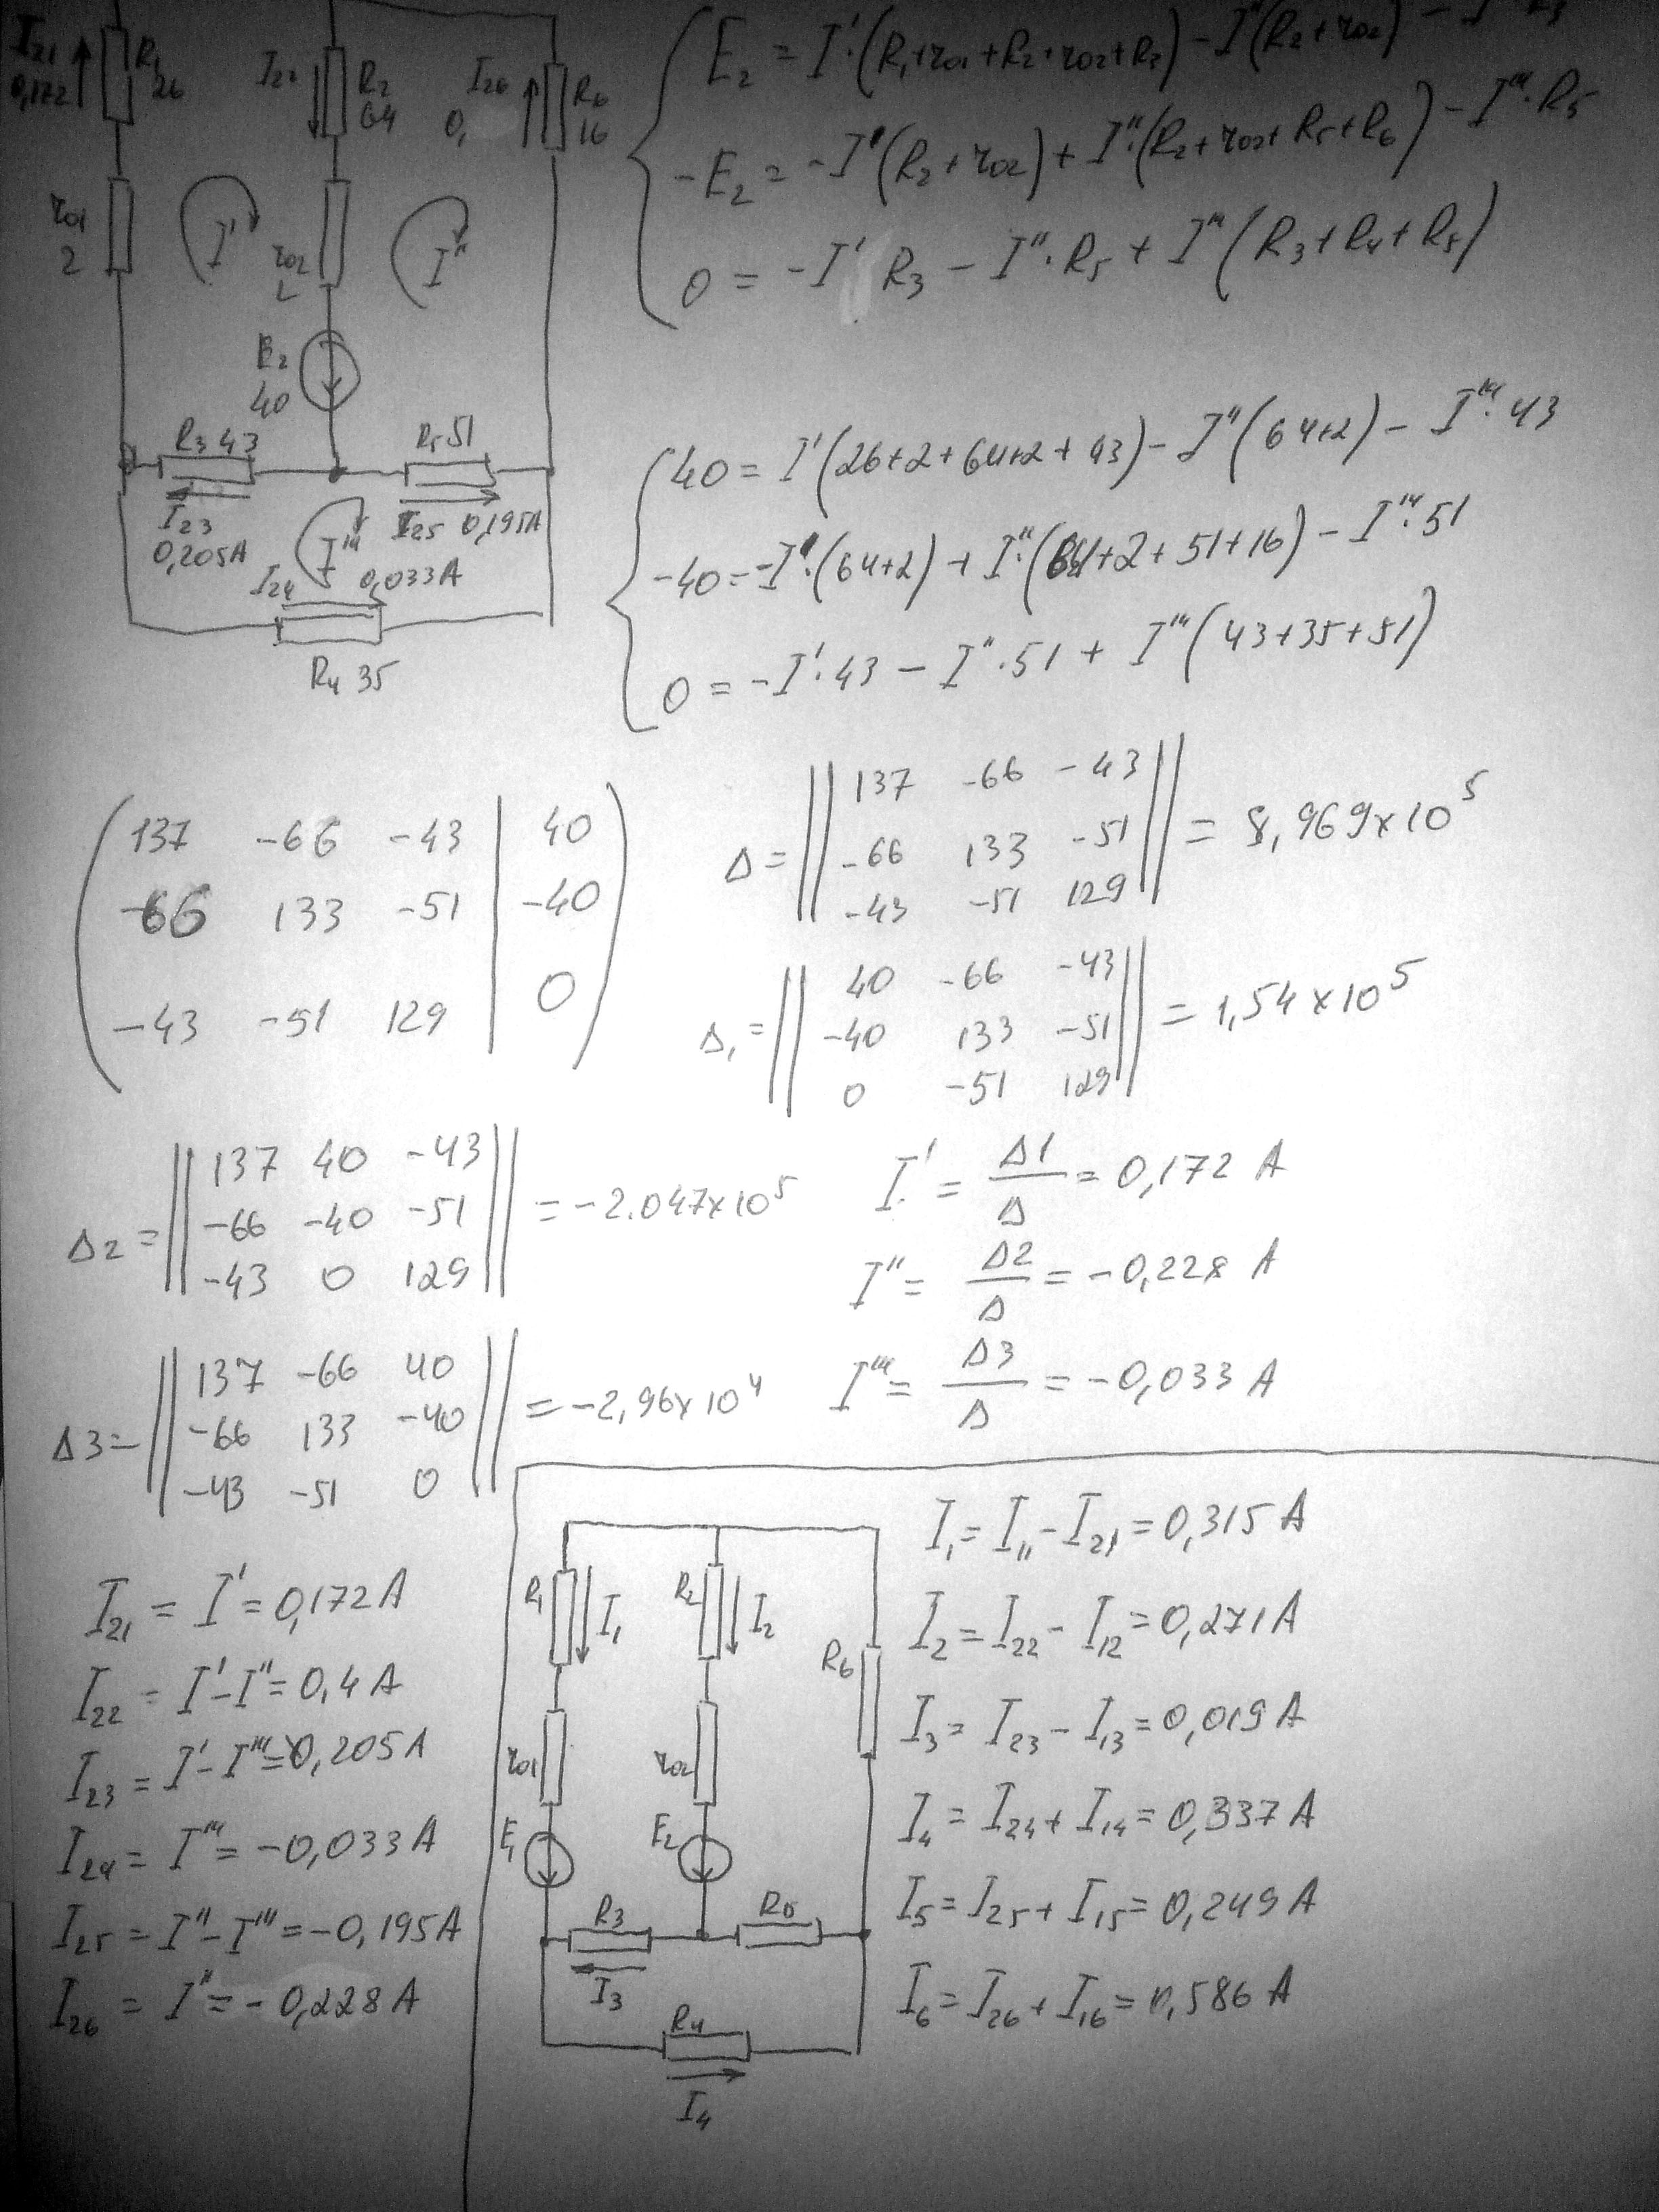 I21 0,172 R1 26
I22 R2 64
I26 0, R6 16
r01 2
I'
r02 2
I''
E2 40
R3 43
R5 51
I23 0,205A
I''' 
I25 0,195A
I24 0,033A
R4 35
E2 = I'·(R1+r01+R2+r02+R3) - I''(R2+r02) -
-E2 = -I'(R2+r02) + I''·(R2+r02+R5+R6) - I'''·R5
0 = -I' R3 - I''·R5 + I'''(R3+R4+R5)
40 = I'(26+2+64+2+43) - I''(64+2) - I'''·43
-40 = -I'·(64+2) + I''·(64+2+51+16) - I'''·51
0 = -I'·43 - I''·51 + I'''(43+35+51)
137 -66 -43 | 40
-66 133 -51 | -40
-43 -51 129 | 0
Δ = || 137 -66 -43
-66 133 -51
-43 -51 129 || = 8,969×10^5
Δ1 = || 40 -66 -43
-40 133 -51
0 -51 129 || = 1,54×10^5
Δ2 = || 137 40 -43
-66 -40 -51
-43 0 129 || = -2.047×10^5
I' = Δ1/Δ = 0,172 A
I'' = Δ2/Δ = -0,228 A
Δ3 = || 137 -66 40
-66 133 -40
-43 -51 0 || = -2,96×10^4
I''' = Δ3/Δ = -0,033 A
I21 = I' = 0,172 A
I22 = I'-I'' = 0,4 A
I23 = I'-I''' = 0,205 A
I24 = I''' = -0,033 A
I25 = I''-I''' = -0,195 A
I26 = I'' = -0,228 A
R1 I1 R2 I2
R6
r01 r02
E1 E2
R3 R5
I3
R4
I4
I1 = I11 - I21 = 0,315 A
I2 = I22 - I12 = 0,271 A
I3 = I23 - I13 = 0,019 A
I4 = I24 + I14 = 0,337 A
I5 = I25 + I15 = 0,249 A
I6 = I26 + I16 = 0,586 A